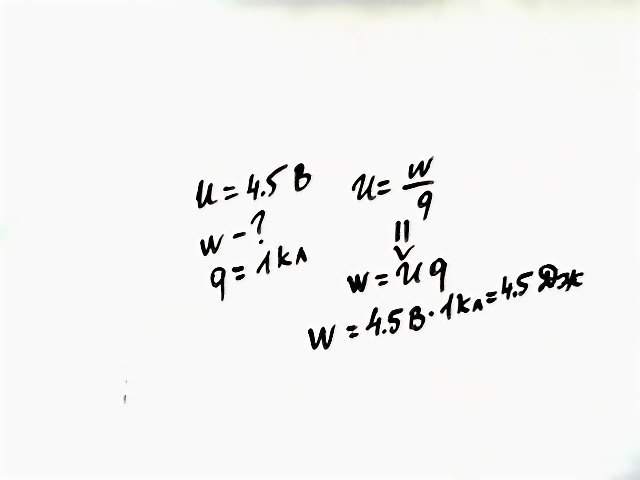 U = 4.5 В
W - ?
q = 1 кл
U = W/q
⇓
W = U q
W = 4.5 В · 1 кл = 4.5 Дж